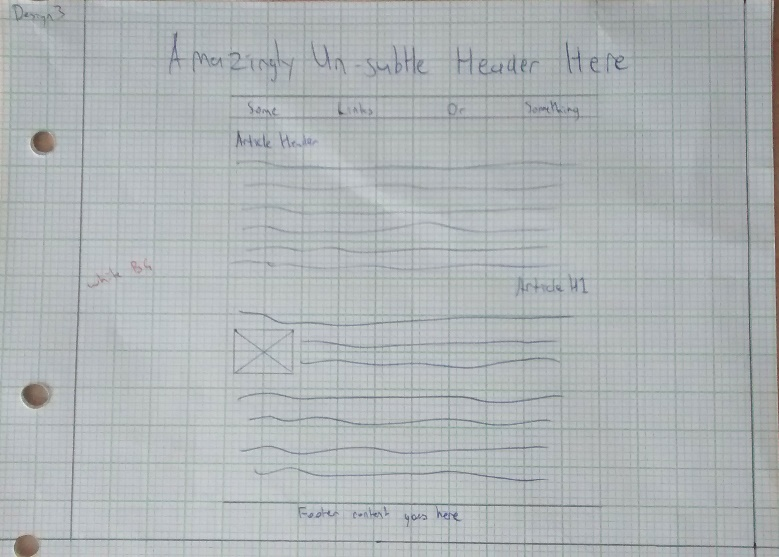 Design 3
Amazingly Un-subtle Header Here
Some Links Or Something
Article Header
white BG
Article H1
Footer content goes here